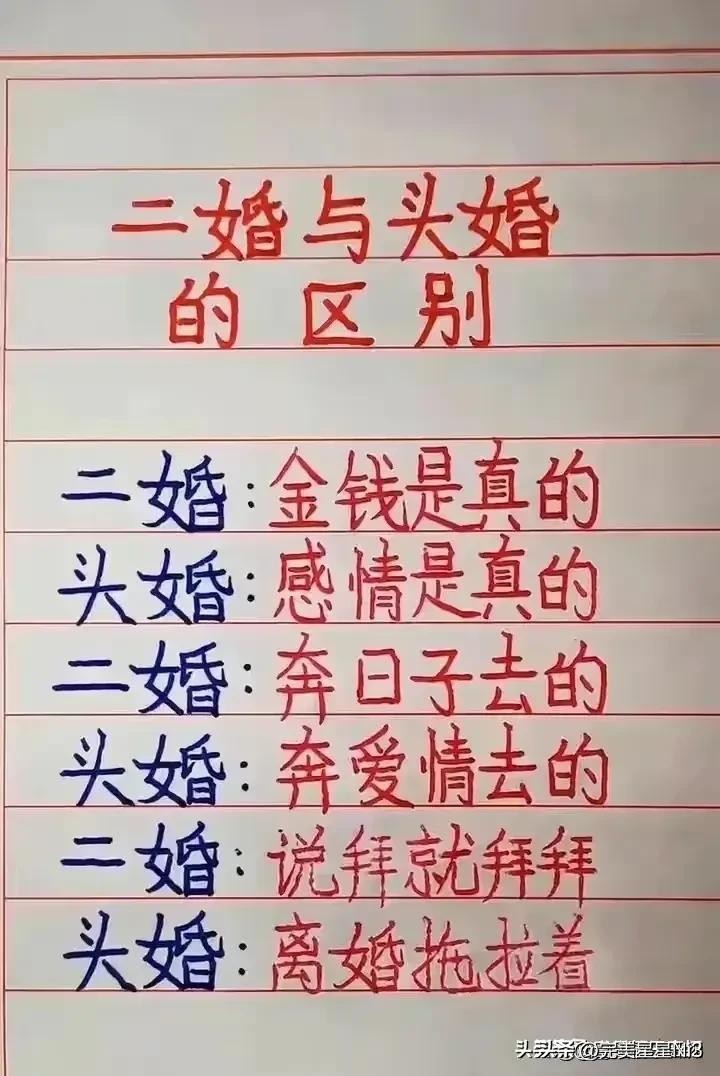 二婚与头婚
的区别
二婚:金钱是真的
头婚:感情是真的
二婚:奔日子去的
头婚:奔爱情去的
二婚:说拜就拜拜
头婚:离婚拖拉着